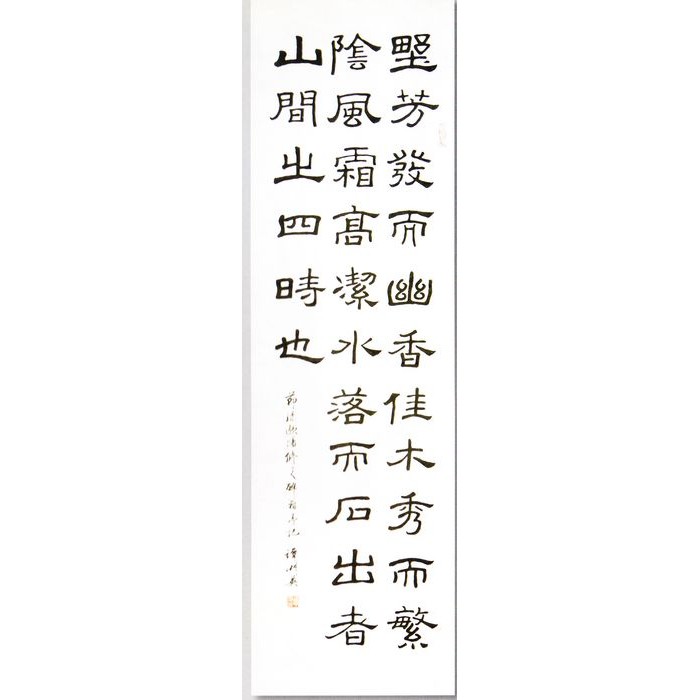 野芳發而幽香佳木秀而繁
陰風霜髙潔水落而石出者
山間之四時也
節錄歐陽修之醉翁亭記